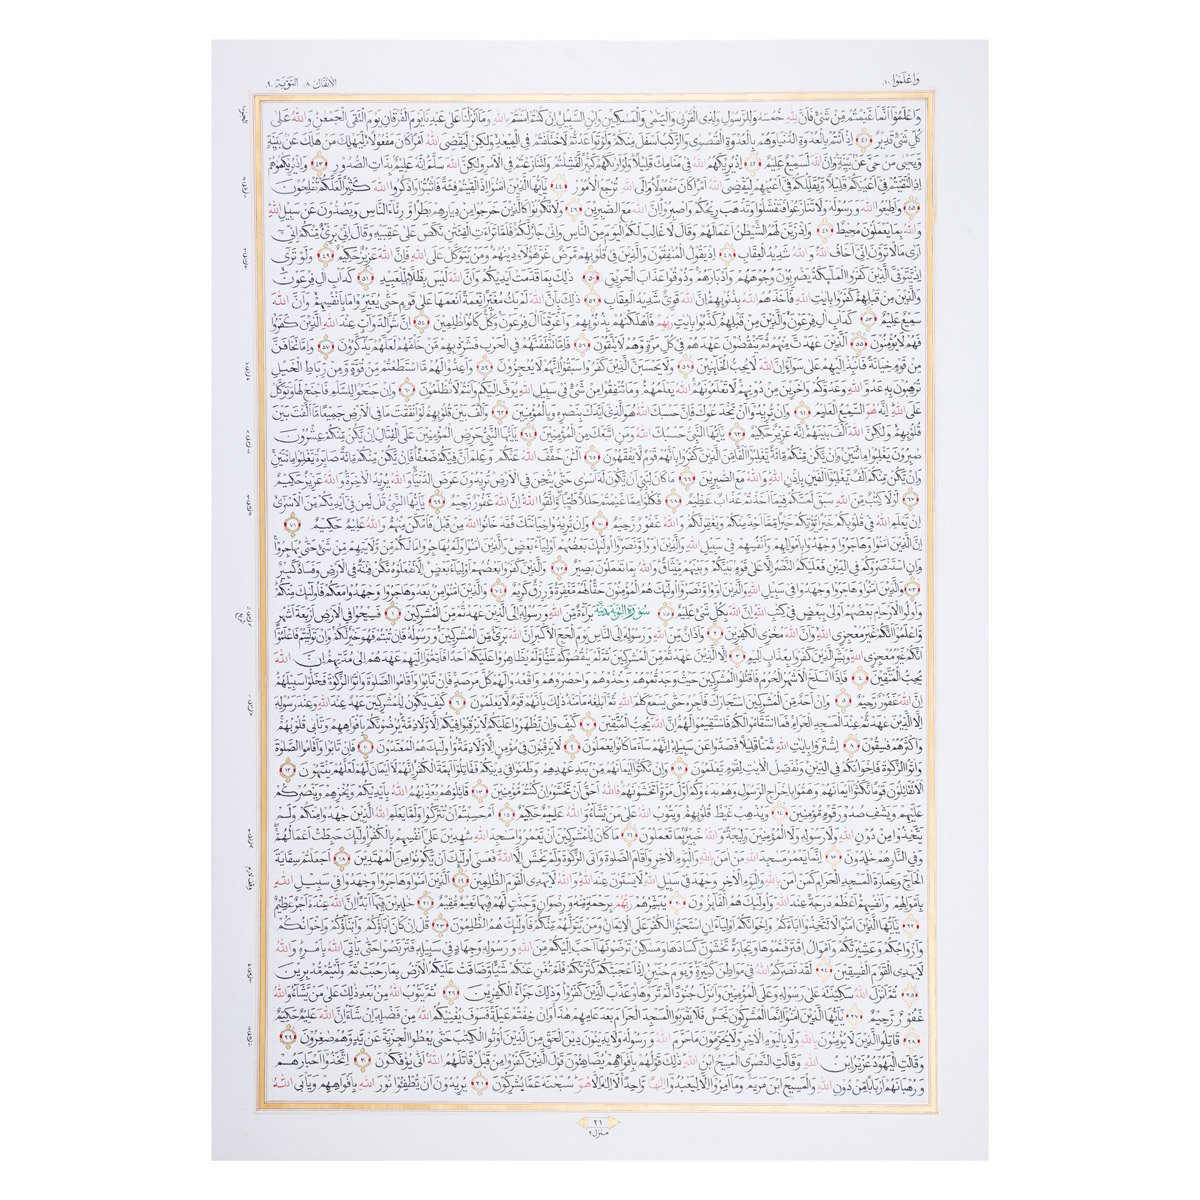 الانفال ٨ التوبة ٩
واعلموا ١٠
واعلموا انما غنمتم من شئ فان لله خمسه وللرسول ولذى القربى واليتمى والمسكين وابن السبيل ان كنتم امنتم بالله وما انزلنا على عبدنا يوم الفرقان يوم التقى الجمعن والله على
كل شئ قدير ٤١ اذ انتم بالعدوة الدنيا وهم بالعدوة القصوى والركب اسفل منكم ولو تواعدتم لاختلفتم فى الميعد ولكن ليقضى الله امرا كان مفعولا ليهلك من هلك عن بينة
ويحيى من حى عن بينة وان الله لسميع عليم ٤٢ اذ يريكهم الله فى منامك قليلا ولو اريكهم كثيرا لفشلتم ولتنازعتم فى الامر ولكن الله سلم انه عليم بذات الصدور ٤٣ واذ يريكموهم
اذ التقيتم فى اعينكم قليلا ويقللكم فى اعينهم ليقضى الله امرا كان مفعولا والى الله ترجع الامور ٤٤ يايها الذين امنوا اذا لقيتم فئة فاثبتوا واذكروا الله كثيرا لعلكم تفلحون
٤٥ واطيعوا الله ورسوله ولا تنازعوا فتفشلوا وتذهب ريحكم واصبروا ان الله مع الصبرين ٤٦ ولا تكونوا كالذين خرجوا من ديارهم بطرا ورئاء الناس ويصدون عن سبيل الله
والله بما يعملون محيط ٤٧ واذ زين لهم الشيطن اعمالهم وقال لا غالب لكم اليوم من الناس وانى جار لكم فلما تراءت الفئتن نكص على عقبيه وقال انى برئ منكم انى
ارى ما لا ترون انى اخاف الله والله شديد العقاب ٤٨ اذ يقول المنفقون والذين فى قلوبهم مرض غر هؤلاء دينهم ومن يتوكل على الله فان الله عزيز حكيم ٤٩ ولو ترى
اذ يتوفى الذين كفروا الملئكة يضربون وجوههم وادبارهم وذوقوا عذاب الحريق ٥٠ ذلك بما قدمت ايديكم وان الله ليس بظلام للعبيد ٥١ كداب ال فرعون
والذين من قبلهم كفروا بايت الله فاخذهم الله بذنوبهم ان الله قوى شديد العقاب ٥٢ ذلك بان الله لم يك مغيرا نعمة انعمها على قوم حتى يغيروا ما بانفسهم وان الله
سميع عليم ٥٣ كداب ال فرعون والذين من قبلهم كذبوا بايت ربهم فاهلكنهم بذنوبهم واغرقنا ال فرعون وكل كانوا ظلمين ٥٤ ان شر الدواب عند الله الذين كفروا
فهم لا يؤمنون ٥٥ الذين عهدت منهم ثم ينقضون عهدهم فى كل مرة وهم لا يتقون ٥٦ فاما تثقفنهم فى الحرب فشرد بهم من خلفهم لعلهم يذكرون ٥٧ واما تخافن
من قوم خيانة فانبذ اليهم على سواء ان الله لا يحب الخائنين ٥٨ ولا يحسبن الذين كفروا سبقوا انهم لا يعجزون ٥٩ واعدوا لهم ما استطعتم من قوة ومن رباط الخيل
ترهبون به عدو الله وعدوكم واخرين من دونهم لا تعلمونهم الله يعلمهم وما تنفقوا من شئ فى سبيل الله يوف اليكم وانتم لا تظلمون ٦٠ وان جنحوا للسلم فاجنح لها وتوكل
على الله انه هو السميع العليم ٦١ وان يريدوا ان يخدعوك فان حسبك الله هو الذى ايدك بنصره وبالمؤمنين ٦٢ والف بين قلوبهم لو انفقت ما فى الارض جميعا ما الفت بين
قلوبهم ولكن الله الف بينهم انه عزيز حكيم ٦٣ يايها النبى حسبك الله ومن اتبعك من المؤمنين ٦٤ يايها النبى حرض المؤمنين على القتال ان يكن منكم عشرون
صبرون يغلبوا مائتين وان يكن منكم مائة يغلبوا الفا من الذين كفروا بانهم قوم لا يفقهون ٦٥ الئن خفف الله عنكم وعلم ان فيكم ضعفا فان يكن منكم مائة صابرة يغلبوا مائتين
وان يكن منكم الف يغلبوا الفين باذن الله والله مع الصبرين ٦٦ ما كان لنبى ان يكون له اسرى حتى يثخن فى الارض تريدون عرض الدنيا والله يريد الاخرة والله عزيز حكيم
٦٧ لولا كتب من الله سبق لمسكم فيما اخذتم عذاب عظيم ٦٨ فكلوا مما غنمتم حللا طيبا واتقوا الله ان الله غفور رحيم ٦٩ يايها النبى قل لمن فى ايديكم من الاسرى
ان يعلم الله فى قلوبكم خيرا يؤتكم خيرا مما اخذ منكم ويغفر لكم والله غفور رحيم ٧٠ وان يريدوا خيانتك فقد خانوا الله من قبل فامكن منهم والله عليم حكيم ٧١
ان الذين امنوا وهاجروا وجهدوا باموالهم وانفسهم فى سبيل الله والذين اووا ونصروا اولئك بعضهم اولياء بعض والذين امنوا ولم يهاجروا ما لكم من ولايتهم من شئ حتى يهاجروا
وان استنصروكم فى الدين فعليكم النصر الا على قوم بينكم وبينهم ميثاق والله بما تعملون بصير ٧٢ والذين كفروا بعضهم اولياء بعض الا تفعلوه تكن فتنة فى الارض وفساد كبير
٧٣ والذين امنوا وهاجروا وجهدوا فى سبيل الله والذين اووا ونصروا اولئك هم المؤمنون حقا لهم مغفرة ورزق كريم ٧٤ والذين امنوا من بعد وهاجروا وجهدوا معكم فاولئك منكم
واولوا الارحام بعضهم اولى ببعض فى كتب الله ان الله بكل شئ عليم ٧٥ براءة من الله ورسوله الى الذين عهدتم من المشركين ١ فسيحوا فى الارض اربعة اشهر
واعلموا انكم غير معجزى الله وان الله مخزى الكفرين ٢ واذان من الله ورسوله الى الناس يوم الحج الاكبر ان الله برئ من المشركين ورسوله فان تبتم فهو خير لكم وان توليتم فاعلموا
انكم غير معجزى الله وبشر الذين كفروا بعذاب اليم ٣ الا الذين عهدتم من المشركين ثم لم ينقصوكم شيئا ولم يظاهروا عليكم احدا فاتموا اليهم عهدهم الى مدتهم ان الله
يحب المتقين ٤ فاذا انسلخ الاشهر الحرم فاقتلوا المشركين حيث وجدتموهم وخذوهم واحصروهم واقعدوا لهم كل مرصد فان تابوا واقاموا الصلوة واتوا الزكوة فخلوا سبيلهم
ان الله غفور رحيم ٥ وان احد من المشركين استجارك فاجره حتى يسمع كلم الله ثم ابلغه مامنه ذلك بانهم قوم لا يعلمون ٦ كيف يكون للمشركين عهد عند الله وعند رسوله
الا الذين عهدتم عند المسجد الحرام فما استقاموا لكم فاستقيموا لهم ان الله يحب المتقين ٧ كيف وان يظهروا عليكم لا يرقبوا فيكم الا ولا ذمة يرضونكم بافواههم وتابى قلوبهم
واكثرهم فسقون ٨ اشتروا بايت الله ثمنا قليلا فصدوا عن سبيله انهم ساء ما كانوا يعملون ٩ لا يرقبون فى مؤمن الا ولا ذمة واولئك هم المعتدون ١٠ فان تابوا واقاموا الصلوة
واتوا الزكوة فاخوانكم فى الدين ونفصل الايت لقوم يعلمون ١١ وان نكثوا ايمانهم من بعد عهدهم وطعنوا فى دينكم فقاتلوا ائمة الكفر انهم لا ايمان لهم لعلهم ينتهون ١٢
الا تقاتلون قوما نكثوا ايمانهم وهموا باخراج الرسول وهم بدءوكم اول مرة اتخشونهم فالله احق ان تخشوه ان كنتم مؤمنين ١٣ قاتلوهم يعذبهم الله بايديكم ويخزهم وينصركم
عليهم ويشف صدور قوم مؤمنين ١٤ ويذهب غيظ قلوبهم ويتوب الله على من يشاء والله عليم حكيم ١٥ ام حسبتم ان تتركوا ولما يعلم الله الذين جهدوا منكم ولم
يتخذوا من دون الله ولا رسوله ولا المؤمنين وليجة والله خبير بما تعملون ١٦ ما كان للمشركين ان يعمروا مسجد الله شهدين على انفسهم بالكفر اولئك حبطت اعمالهم
وفى النار هم خلدون ١٧ انما يعمر مسجد الله من امن بالله واليوم الاخر واقام الصلوة واتى الزكوة ولم يخش الا الله فعسى اولئك ان يكونوا من المهتدين ١٨ اجعلتم سقاية
الحاج وعمارة المسجد الحرام كمن امن بالله واليوم الاخر وجهد فى سبيل الله لا يستون عند الله والله لا يهدى القوم الظلمين ١٩ الذين امنوا وهاجروا وجهدوا فى سبيل الله
باموالهم وانفسهم اعظم درجة عند الله واولئك هم الفائزون ٢٠ يبشرهم ربهم برحمة منه ورضوان وجنت لهم فيها نعيم مقيم ٢١ خلدين فيها ابدا ان الله عنده اجر عظيم
٢٢ يايها الذين امنوا لا تتخذوا اباءكم واخوانكم اولياء ان استحبوا الكفر على الايمان ومن يتولهم منكم فاولئك هم الظلمون ٢٣ قل ان كان اباؤكم وابناؤكم واخوانكم
وازواجكم وعشيرتكم واموال اقترفتموها وتجارة تخشون كسادها ومسكن ترضونها احب اليكم من الله ورسوله وجهاد فى سبيله فتربصوا حتى ياتى الله بامره والله
لا يهدى القوم الفسقين ٢٤ لقد نصركم الله فى مواطن كثيرة ويوم حنين اذ اعجبتكم كثرتكم فلم تغن عنكم شيئا وضاقت عليكم الارض بما رحبت ثم وليتم مدبرين
٢٥ ثم انزل الله سكينته على رسوله وعلى المؤمنين وانزل جنودا لم تروها وعذب الذين كفروا وذلك جزاء الكفرين ٢٦ ثم يتوب الله من بعد ذلك على من يشاء والله
غفور رحيم ٢٧ يايها الذين امنوا انما المشركون نجس فلا يقربوا المسجد الحرام بعد عامهم هذا وان خفتم عيلة فسوف يغنيكم الله من فضله ان شاء ان الله عليم حكيم
٢٨ قاتلوا الذين لا يؤمنون بالله ولا باليوم الاخر ولا يحرمون ما حرم الله ورسوله ولا يدينون دين الحق من الذين اوتوا الكتب حتى يعطوا الجزية عن يد وهم صغرون ٢٩
وقالت اليهود عزير ابن الله وقالت النصرى المسيح ابن الله ذلك قولهم بافواههم يضاهؤن قول الذين كفروا من قبل قاتلهم الله انى يؤفكون ٣٠ اتخذوا احبارهم
ورهبانهم اربابا من دون الله والمسيح ابن مريم وما امروا الا ليعبدوا الها واحدا لا اله الا هو سبحنه عما يشركون ٣١ يريدون ان يطفئوا نور الله بافواههم ويابى الله
٢١
منزل ٢